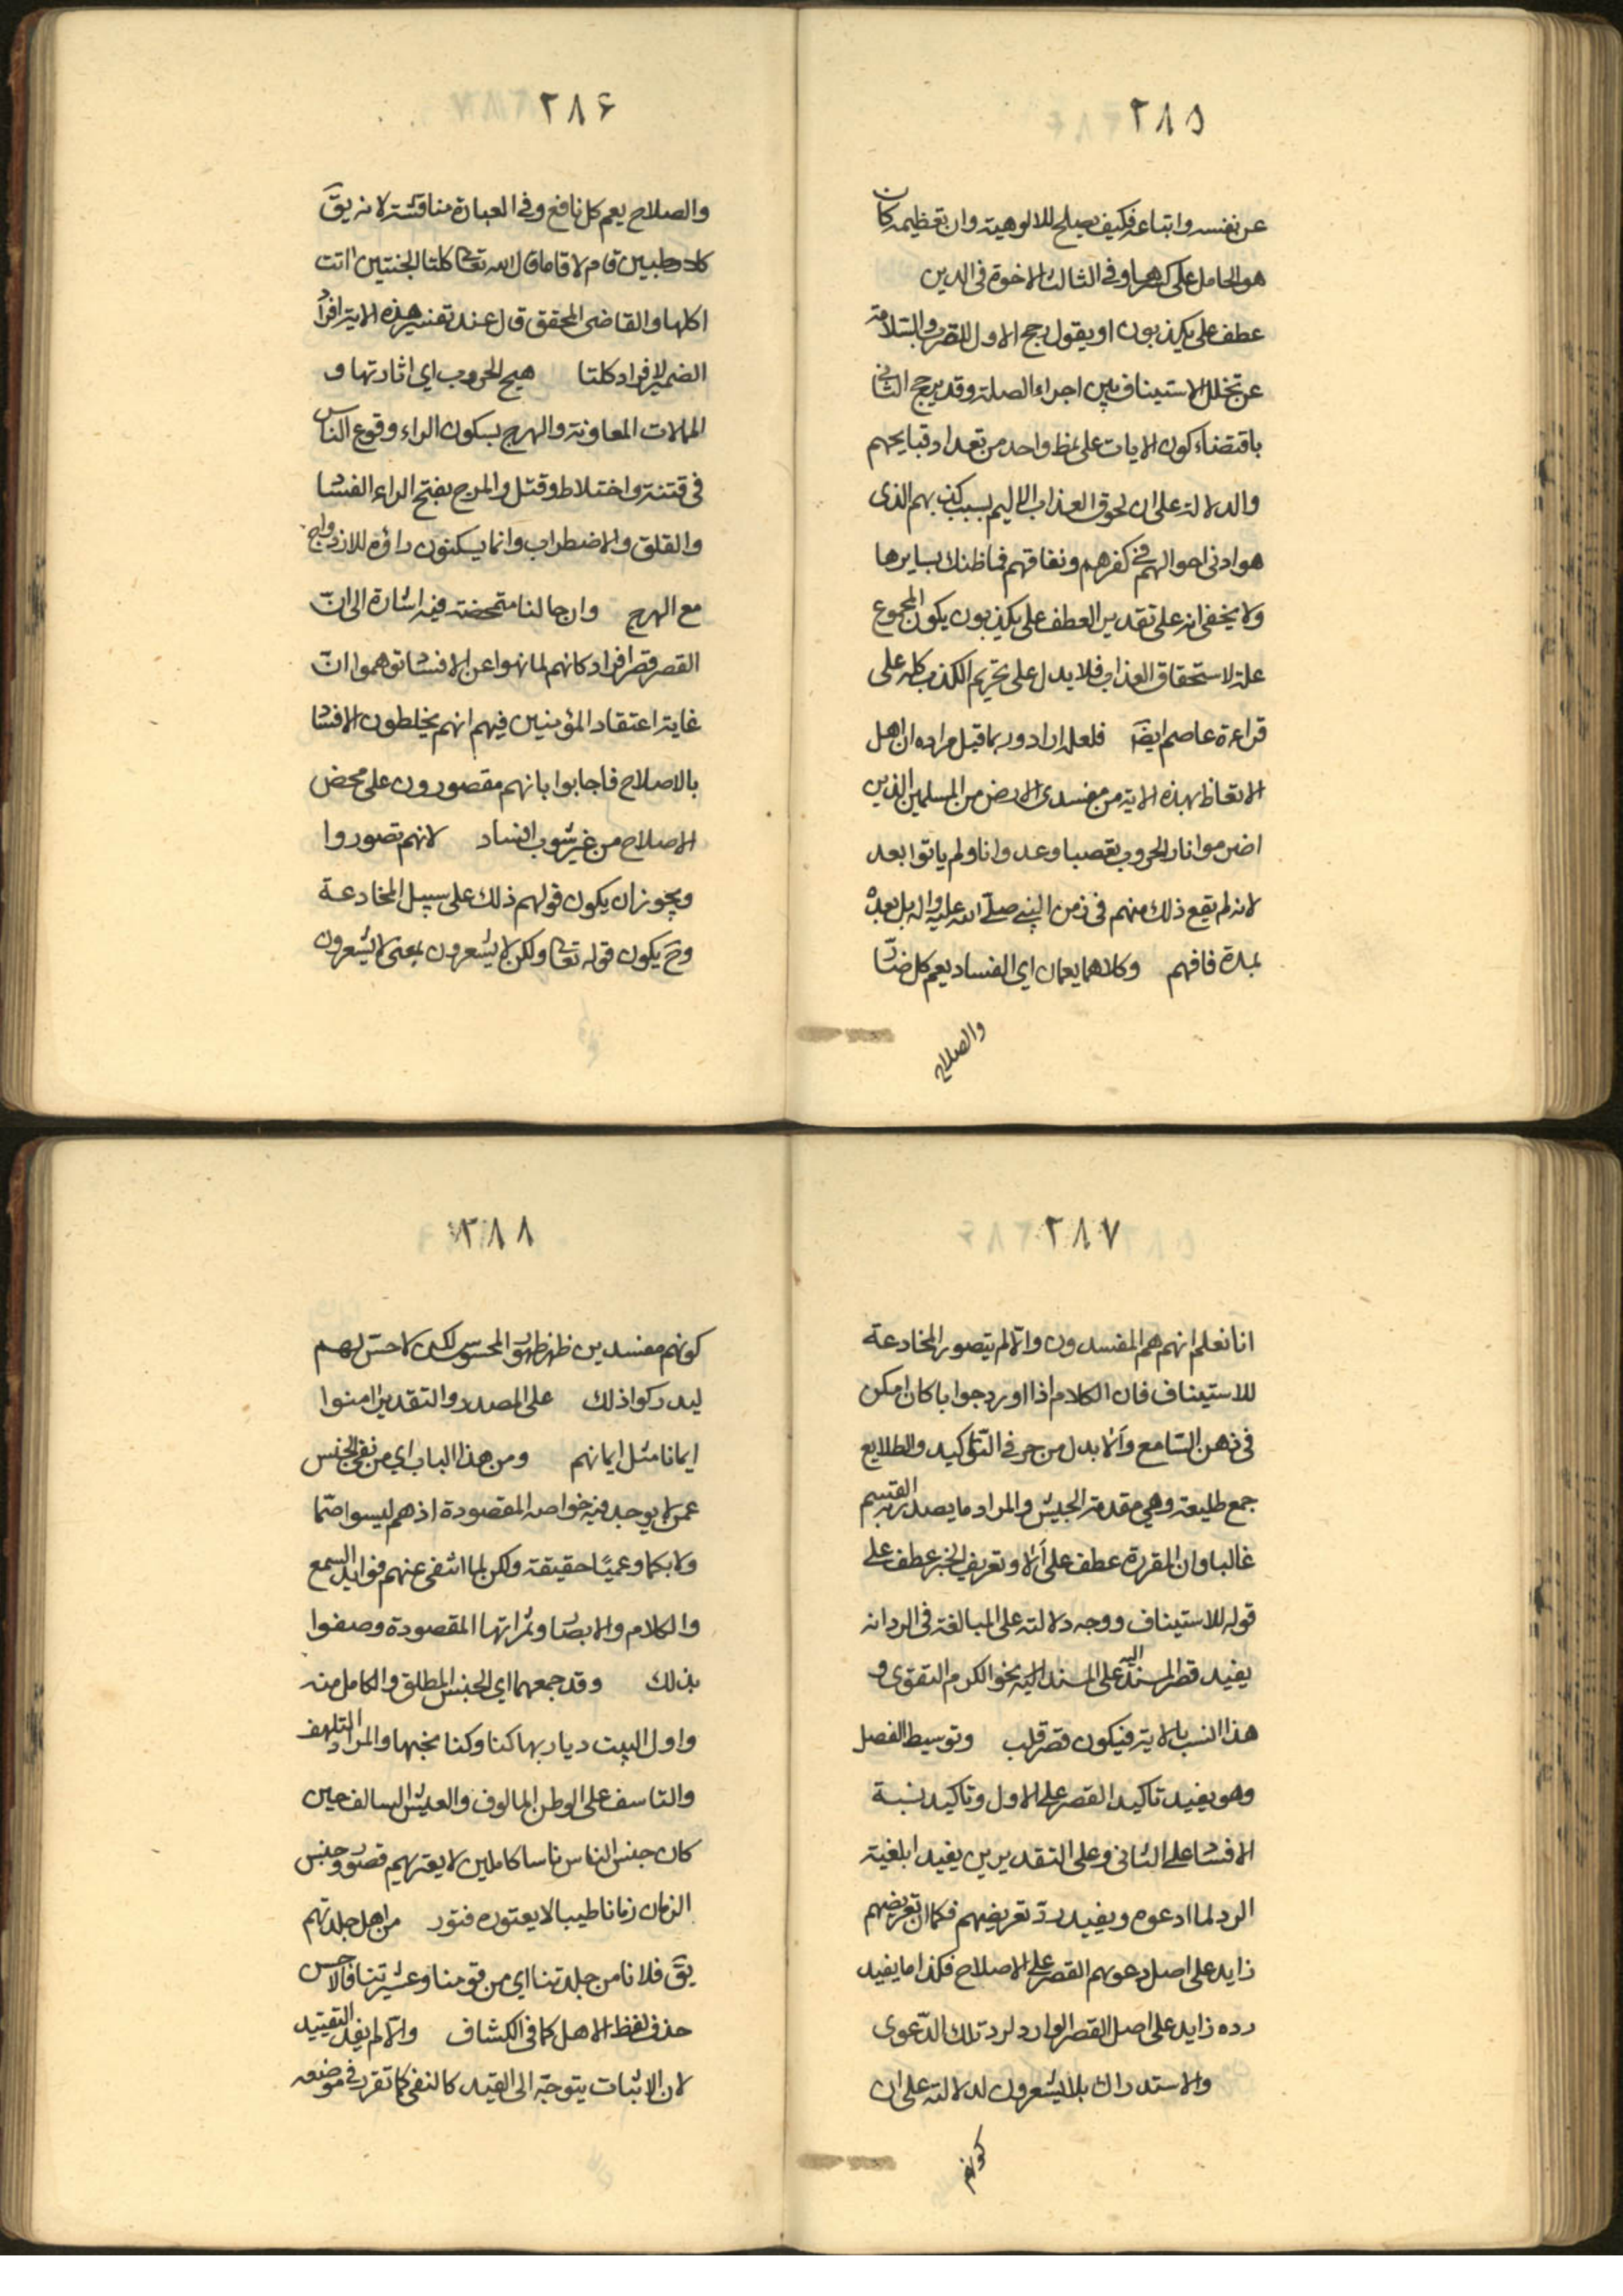 ٢٨٥
عن نفسه واتباعه فكيف يصلح للالوهية وان تعظيمه كان
هو الحامل على كفرها وفى الثالث الاخوة فى الدين
عطف على يكذبون او يقول رجح الاول للقرب والسلامة
عن تخلل الاستيناف بين اجزاء الصلة وقد يرجح الثانى
باقتضاء كون الايات على نمط واحد من تعداد قبايحهم
والدلالة على ان لحوق العذاب الاليم بسبب كذبهم الذى
هو ادنى احوالهم فى كفرهم ونفاقهم فما ظنك بسايرها
ولا يخفى انه على تقدير العطف على يكذبون يكون المجموع
علة لاستحقاق العذاب فلا يدل على تحريم الكذب كله على
قراءة عاصم ايضا فلعله اراد وربما قيل مراده ان اهل
الاتعاظ بهذه الاية من مفسدى الارض من المسلمين الذين
اضرموا نار الحروب تعصبا وعدوانا ولم ياتوا بعد
لانه لم يقع ذلك منهم فى زمن النبى صلى الله عليه واله بل بعده
بمدة فافهم وكلاهما يعمان اى الفساد يعم كل ضار
والصلاح
٢٨۶
والصلاح يعم كل نافع وفى العبارة مناقشة لانه يقَ
كلا وطبين قام لا قاما قال الله تعالى كلتا الجنتين اتت
اكلها والقاضى المحقق قال عند تفسير هذه الاية افراد
الضمير لافراد كلتا هيج الحروب اي اثارتها و
الممالات المعاونة والهرج بسكون الراء وقوع الناس
فى فتنة واختلاط وقتل والمرج بفتح الراء الفساد
والقلق والاضطراب وانما يسكنون راؤه للازدواج
مع الهرج وان حالنا متمحضة فيه اشارة الى انّ
القصر قصر افراد كانهم لما نهوا عن الافساد توهموا انّ
غاية اعتقاد المؤمنين فيهم انهم يخلطون الافساد
بالاصلاح فاجابوا بانهم مقصورون على محض
الاصلاح من غير شوب افساد لانهم تصوروا
ويجوز ان يكون قولهم ذلك على سبيل المخادعة
وحَ يكون قوله تعالى ولكن لا يشعرون بمعنى لا يشعرون
٢٨٧
انا نعلم انهم هم المفسدون والّا لم يتصور المخادعة
للاستيناف فان الكلام اذا اورد جوابا كان امكن
فى ذهن السامع وألا بدل من حرفى التاكيد والطلايع
جمع طليعة وهي مقدمة الجيش والمراد ما يصدر به القسم
غالبا وان المقررة عطف على ألا وتعريف الخبر عطف على
قوله للاستيناف ووجه دلالته على المبالغة فى الرد انه
يفيد قصر المسند اليه على المسند اليه نحو الكرم التقوى و
هذا انسب بالاية فيكون قصر قلب وتوسيط الفصل
وهو يفيد تاكيد القصر على الاول وتاكيد نسبة
الافساد على الثانى وعلى التقديرين يفيد ابلغية
الرد لما ادعوه ويفيد ردّ تعريضهم فكما ان تعريضهم
زايد على اصل دعويهم القصر على الاصلاح فكذا ما يفيد
رده زايد على اصل القصر الوارد لرد تلك الدّعوى
والاستدراك بلا يشعرون لدلالته على ان
كونهم
٢٨٨
كونهم مفسدين ظهر ظهور المحسوس لكن لا حسّ لهم
ليدركوا ذلك على المصدر والتقدير امنوا
ايمانا مثل ايمانهم ومن هذا الباب اي من نفى الجنس
عمن لا يوجد فيه خواصه المقصودة اذ هم ليسوا صمّا
ولا بكما وعميًا حقيقة ولكن لما انتفى عنهم فوايد السمع
والكلام والابصار وثمراتها المقصودة وصفوا
بذلك وقد جمعهما اى الجنس المطلق والكامل منه
واول البيت ديار بها كنا وكنا نحبها والمراد التلهف
والتاسف على الوطن المالوف والعيش السالف حين
كان جنس الناس ناسا كاملين لا يعتريهم قصور وجنس
الزمان زمانا طيبا لا يعتوره فتور من اهل جلدتهم
يقَ فلانا من جلدتنا اي من قومنا وعشيرتنا فالاحسن
حذف لفظ الاهل كما فى الكشاف والّا لم يفد التقييد
لان الاثبات يتوجّه الى القيد كالنفى كما تقرر فى موضعه